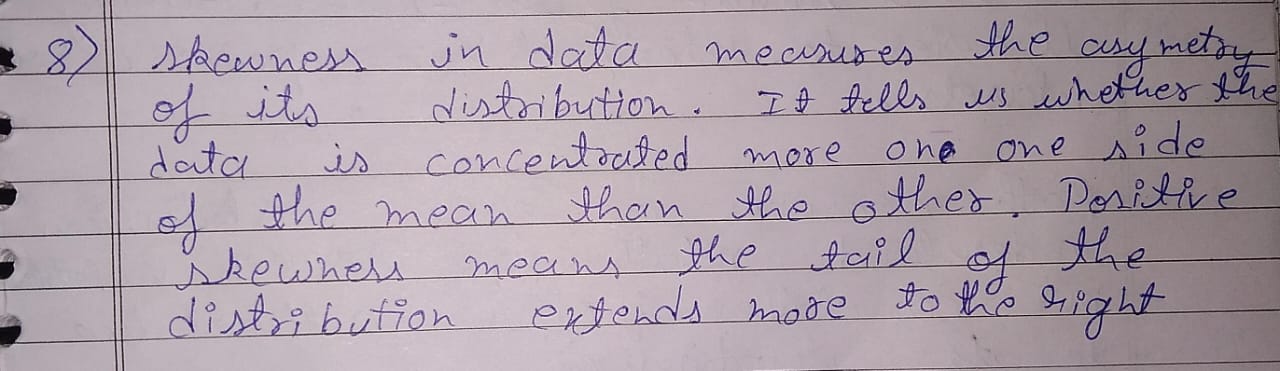 8) skewness in data measures the asymetry
of its distribution. It tells us whether the
data is concentrated more one one side
of the mean than the other. Positive
skewness means the tail of the
distribution extends more to the right